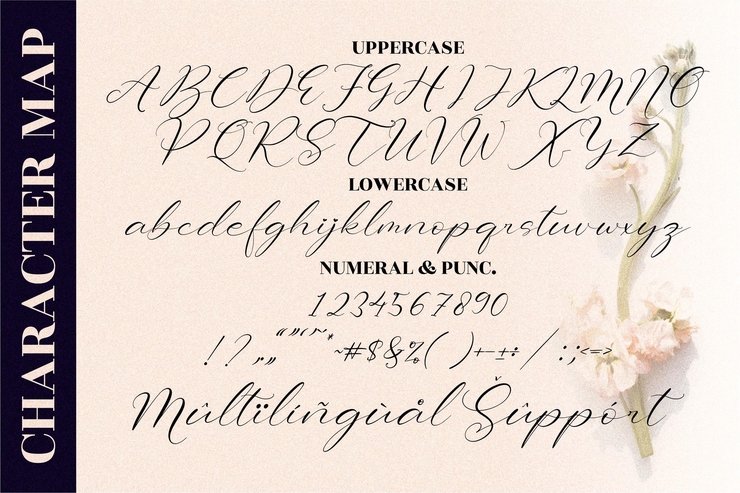 CHARACTER MAP
UPPERCASE
A B C D E F G H I J K L M N O
P Q R S T U V W X Y Z
LOWERCASE
a b c d e f g h i j k l m n o p q r s t u v w x y z
NUMERAL & PUNC.
1 2 3 4 5 6 7 8 9 0
! ? , „ “ ” ‘ ’ ~ * ~ # $ & % ( ) + - ± ÷ / : ; < = >
Mûltïlíñgùål Šûppórt